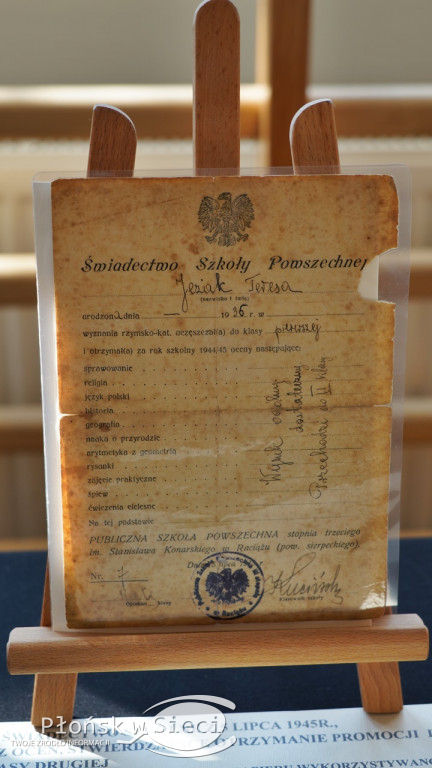 Świadectwo Szkoły Powszechnej
Jeziak Teresa
(nazwisko i imię)
urodzona dnia — 1936 r. w
wyznania rzymsko-kat. uczęszczał(a) do klasy pierwszej
i otrzymał(a) za rok szkolny 1944/45 oceny następujące:
sprawowanie
religia
język polski
historia
geografia
nauka o przyrodzie
arytmetyka z geometrią
rysunki
zajęcie praktyczne
śpiew
ćwiczenia cielesne
Wynik ogólny
dostateczny
Przechodzi do II klasy
Na tej podstawie
PUBLICZNA SZKOŁA POWSZECHNA stopnia trzeciego
im. Stanisława Konarskiego w Raciążu (pow. sierpeckiego).
Nr. 7
w Raciążu
Kierownik Szkoły
Płońsk w Sieci
TWOJE ŹRÓDŁO INFORMACJI
LIPCA 1945R.,
OCEN, STWIERDZA OTRZYMANIE PROMOCJI
DRUGIEJ